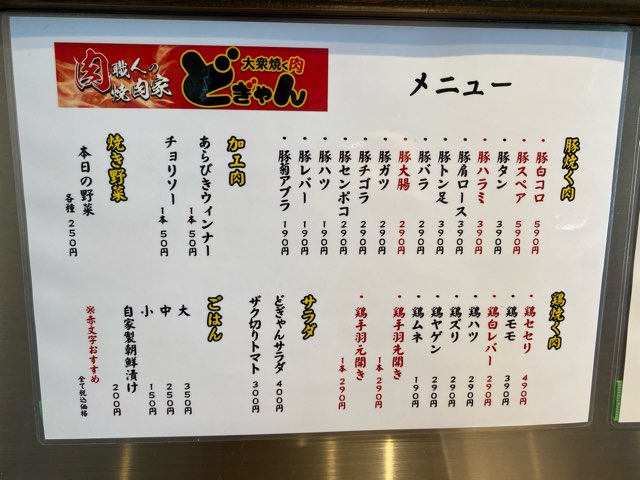 肉職人の焼肉家
大衆焼く肉
どぎゃん
メニュー
豚焼く肉
・豚白コロ 590円
・豚スペア 590円
・豚タン 390円
・豚ハラミ 390円
・豚肩ロース 390円
・豚トン足 290円
・豚バラ 290円
・豚大腸 290円
・豚ガツ 290円
・豚チゴラ 290円
・豚センボコ 290円
・豚ハツ 190円
・豚レバー 190円
・豚菊アブラ 190円
加工肉
あらびきウィンナー 1本 50円
チョリソー 1本 50円
焼き野菜
本日の野菜 各種 250円
鶏焼く肉
・鶏セセリ 490円
・鶏モモ 390円
・鶏白レバー 290円
・鶏ハツ 290円
・鶏ズリ 290円
・鶏ヤゲン 290円
・鶏ムネ 190円
・鶏手羽先開き 1本 290円
・鶏手羽元開き 1本 290円
サラダ
どぎゃんサラダ 400円
ザク切りトマト 300円
ごはん
大 350円
中 250円
小 150円
自家製朝鮮漬け 200円
※赤文字おすすめ
全て税込価格